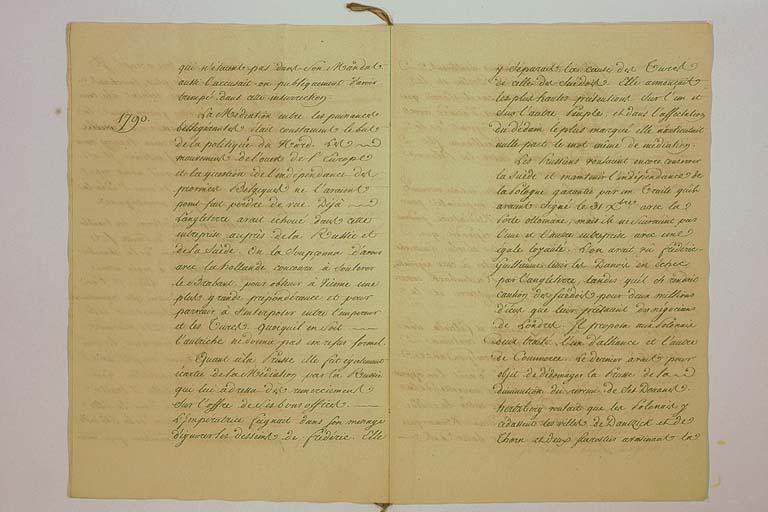 qui n'etaient pas dans son Mandat
aussi l'accusait-on publiquement d'avoir
trempé dans cette insurrection.
1790.
La Médiation entre les puissances
belligérantes était constamment le but
de la politique du Nord. Les
mouvemens de l'ouest de l'Europe
et la question de l'indépendance des
provinces Belgiques ne l'avaient
point fait perdre de vue. Déjà
l'angleterre avait echoué dans cette
entreprise auprès de la Russie et
de la Suède. On la soupçonna d'avoir
avec la hollande concouru à soulever
le Brabant pour obtenir à Vienne une
plus grande prépondérance et pour
parvenir à s'interposer entre l'empereur
et les Turcs. Quoiqu'il en soit
l'autriche ne donna pas un refus formel.
Quant à la Prusse elle fut egalement
écartée de la Médiation par la Russie
qui lui adressa des remerciemens
sur l'offre de ses bons offices.
L'Impératrice feignait dans son message
d'ignorer les desseins de frédéric. Elle
y séparait la cause des Turcs
de celle des Suédois. Elle annonçait
les plus hautes prétentions sur l'un et
sur l'autre peuple, et dans l'affectation
du dédain le plus marqué elle n'articulait
nulle part le mot même de médiation.
Les Prussiens voulaient encore conserver
la Suède et maintenir l'indépendance de
la Pologne garantie par un Traité qu'ils
avaient signé le 31 Xbre avec la
Porte ottomane; mais ils ne suivaient pas
l'une et l'autre entreprise avec une
egale loyauté. L'on avait vu frédéric-
Guillaume tenir les Danois en échec
par l'angleterre, tandis qu'il se rendait
caution des suédois pour deux millions
d'écus que leur prêtaient des négocians
de Londres. Il proposa aux Polonais
deux traités, l'un d'alliance et l'autre
de Commerce. Le dernier avait pour
objet de dédomager la Prusse de la
diminution du revenu de ses Douanes.
hertzberg voulait que les Polonais y
cédassent les villes de Dantzick et de
Thorn et deux starosties avoisinant la